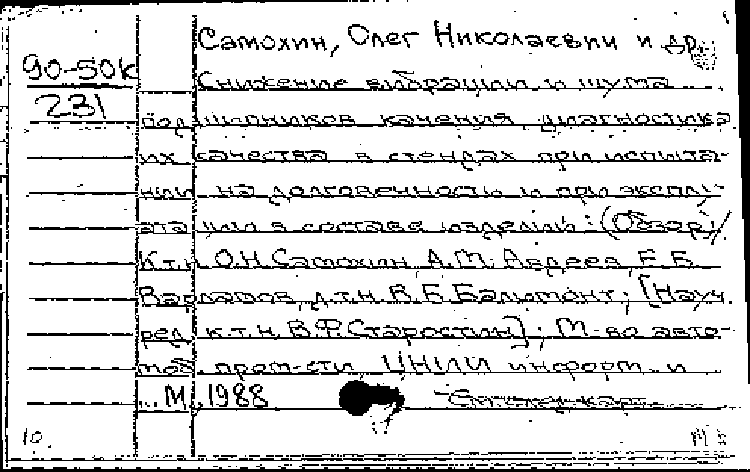 Самохин, Олег Николаевич и др.
90-50к
Снижение вибрации и шума
231
подшипников качения, диагностика
их качества в стендах при испыта-
нии на долговечность и при эксплу-
атации в составе изделий: (Обзор)/
К.т.н. О.Н. Самохин, А.М. Авдеев, Е.Б.
Варламов, д.т.н. В.Б. Бальмонт; [Науч.
ред. к.т.н. В.Ф. Старостин]; М-во авто-
моб. пром-сти, ЦНИИ информ. и
... М., 1988
10.